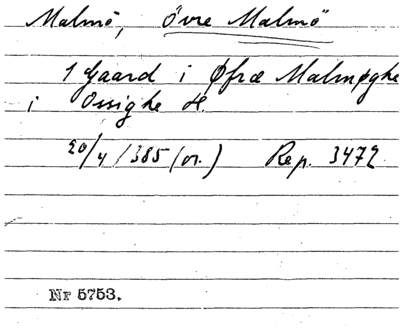 Malmö, Övre Malmö
1 Gaard i Øfræ Malmøghe
i Ossighe H.
20/4 1385 (or.) Rep. 3472
Nr 5753.